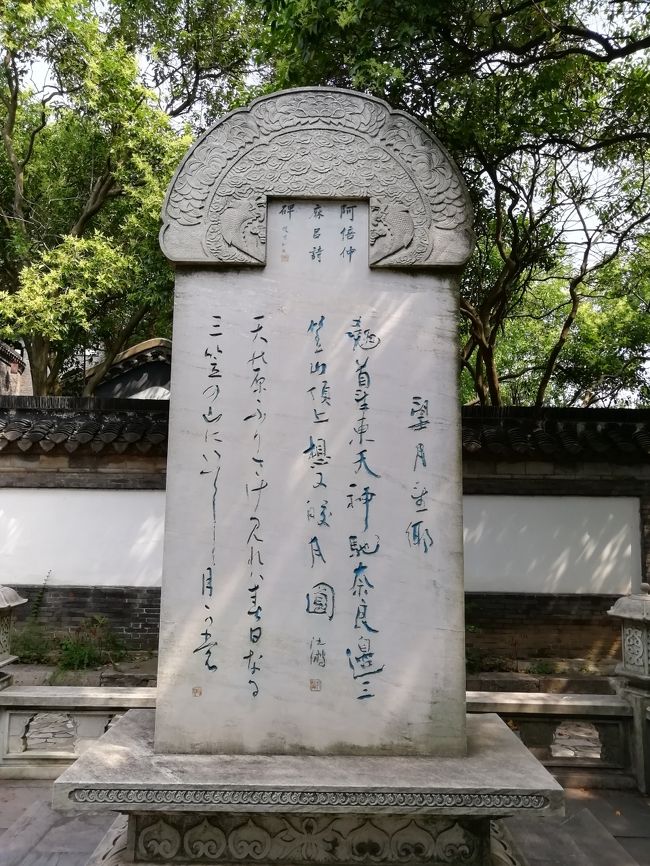 阿倍仲
麻呂詩
碑
望月望鄉
翹首望東天神馳奈良邊三
笠山頂上想又皎月圓 沈鵬
天の原ふりさけ見れハ春日なる
三笠の山にいてし月可裳